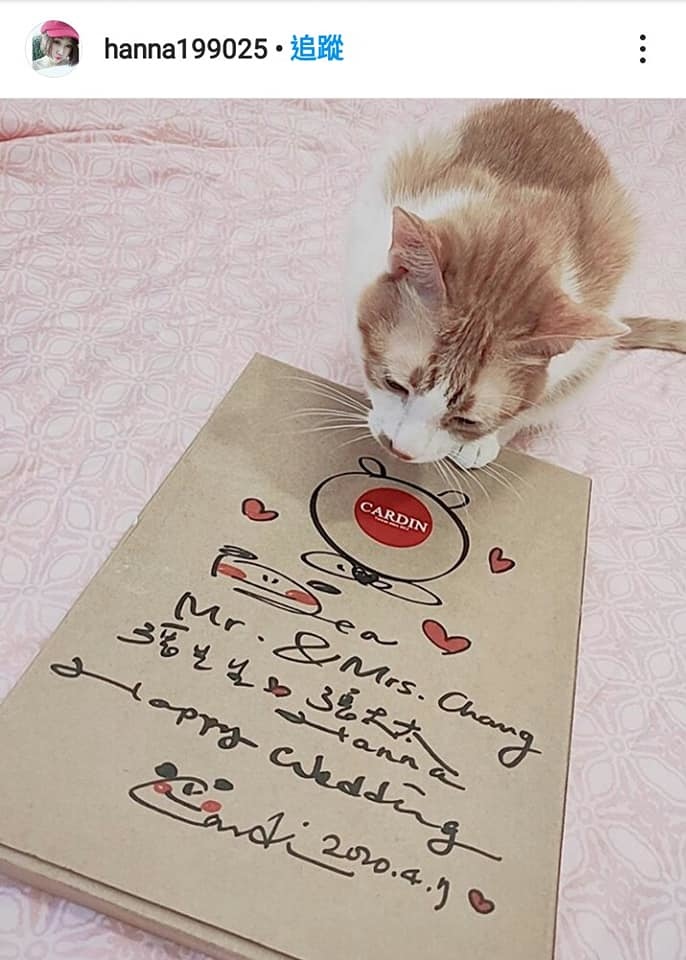 hanna199025 • 追蹤
CARDIN
Mr. & Mrs. Chang
張先生 張太太
Hanna
Happy Wedding
Cardin 2020.4.9